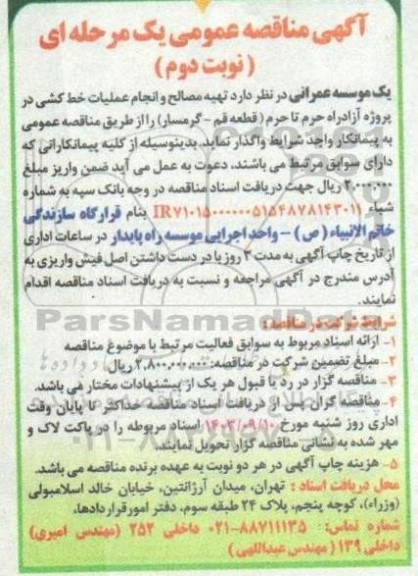 آگهی مناقصه عمومی یک مرحله ای
( نوبت دوم )
یک موسسه عمرانی در نظر دارد تهیه مصالح و انجام عملیات خط کشی در
پروژه آزادراه حرم تا حرم ( قطعه قم - گرمسار) را از طریق مناقصه عمومی
به پیمانکار واجد شرایط واگذار نماید. بدینوسیله از کلیه پیمانکارانی که
دارای سوابق مرتبط می باشند، دعوت به عمل می آید ضمن واریز مبلغ
۲,۰۰۰,۰۰۰ ریال جهت دریافت اسناد مناقصه در وجه بانک سپه به شماره
شباء (IR۷۱۰۱۵۰۰۰۰۰۰۵۱۵۴۸۷۸۱۴۳۰۱) بنام قرارگاه سازندگی
خاتم الانبیاء ( ص ) - واحد اجرایی موسسه راه پایدار در ساعات اداری
از تاریخ چاپ آگهی به مدت ۳ روز با در دست داشتن اصل فیش واریزی به
آدرس مندرج در آگهی مراجعه و نسبت به دریافت اسناد مناقصه اقدام
نمایند.
ParsNamadData
شرایط شرکت در مناقصه:
۱- ارائه اسناد مربوط به سوابق فعالیت مرتبط با موضوع مناقصه
۲- مبلغ تضمین شرکت در مناقصه: ۲,۸۰۰,۰۰۰,۰۰۰ ریال
۳- مناقصه گزار در رد یا قبول هر یک از پیشنهادات مختار می باشد.
۴- مناقصه گران پس از دریافت اسناد مناقصه حداکثر تا پایان وقت
اداری روز شنبه مورخ ۱۴۰۳/۰۹/۱۰ اسناد مربوطه را در پاکت لاک و
مهر شده به نشانی مناقصه گزار تحویل نمایند.
۵- هزینه چاپ آگهی در هر دو نوبت به عهده برنده مناقصه می باشد.
محل دریافت اسناد : تهران، میدان آرژانتین، خیابان خالد اسلامبولی
(وزراء)، کوچه پنجم، پلاک ۲۴ طبقه سوم، دفتر امور قراردادها.
شماره تماس: ۸۸۷۱۱۱۳۵-۰۲۱ داخلی ۲۵۲ (مهندس امیری)
داخلی ۱۳۹ ( مهندس عبداللهی )